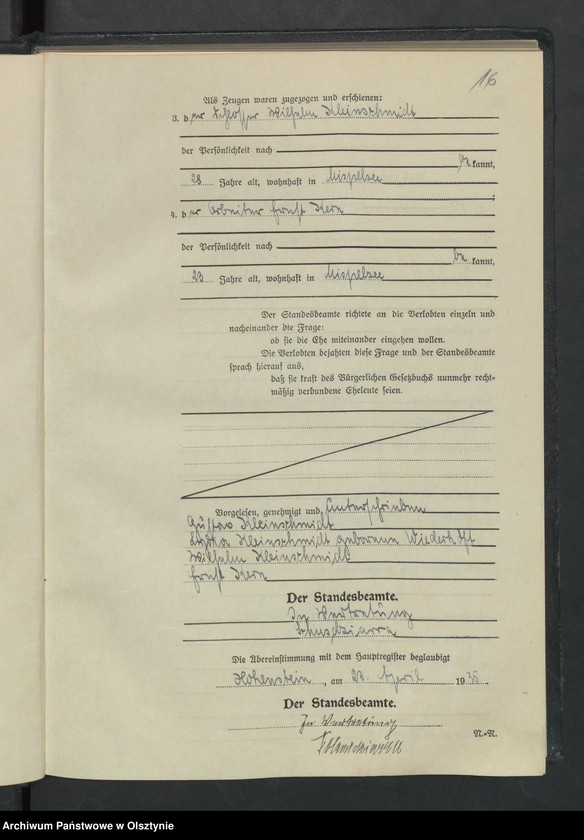 16
Als Zeugen waren zugezogen und erschienen:
3. der Schlosser Wilhelm Kleinschmidt
der Persönlichkeit nach
be kannt,
28 Jahre alt, wohnhaft in Mispelsee
;
4. der Arbeiter Ernst Kern
der Persönlichkeit nach
be kannt,
23 Jahre alt, wohnhaft in Mispelsee
Der Standesbeamte richtete an die Verlobten einzeln und
nacheinander die Frage:
ob sie die Ehe miteinander eingehen wollen.
Die Verlobten bejahten diese Frage und der Standesbeamte
sprach hierauf aus,
daß sie kraft des Bürgerlichen Gesetzbuchs nunmehr recht-
mäßig verbundene Eheleute seien.
Vorgelesen, genehmigt und unterschrieben
Gustav Kleinschmidt
Kleinschmidt geborenen
Wilhelm Kleinschmidt
Ernst Kern
Der Standesbeamte.
In Vertretung
Die Übereinstimmung mit dem Hauptregister beglaubigt
Hohenstein, am 23. April 1935.
Der Standesbeamte.
In Vertretung
N.-R.
Archiwum Państwowe w Olsztynie